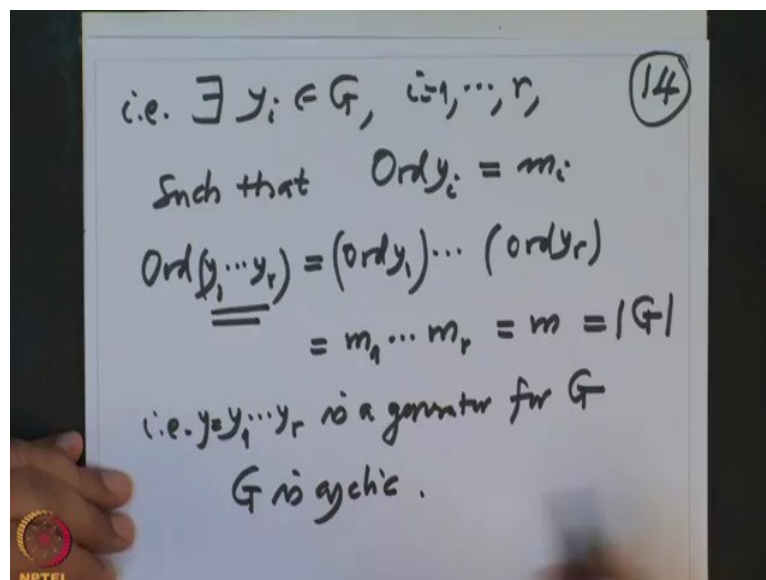 i.e. ∃ yᵢ ∈ G, i=1,⋯,r,
14
Such that Ord yᵢ = mᵢ
Ord(y₁⋯yᵣ) = (ord y₁)⋯(ord yᵣ)
= m₁⋯mᵣ = m = |G|
i.e. y=y₁⋯yᵣ is a generator for G
G is cyclic.
NPTEL